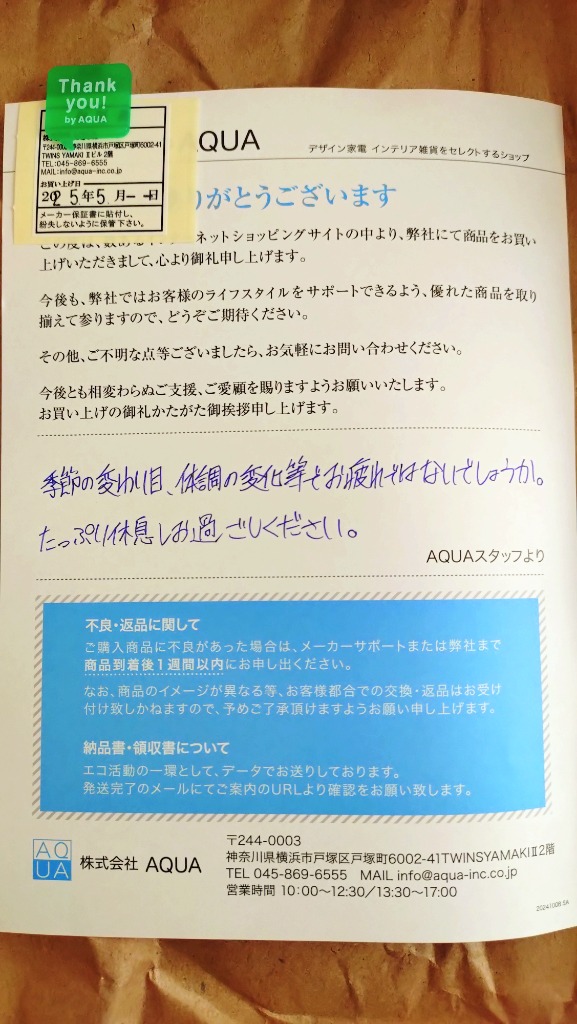 Thank
you!
by AQUA
AQUA
デザイン家電 インテリア雑貨をセレクトするショップ
〒244-0003 神奈川県横浜市戸塚区戸塚町6002-41
TWINS YAMAKI Ⅱビル 2階
TEL:045-869-6555
MAIL:info@aqua-inc.co.jp
お買い上げ日
2025年5月--日
メーカー保証書に貼付し、
紛失しないように保管下さい。
りがとうございます
ネットショッピングサイトの中より、弊社にて商品をお買い
上げいただきまして、心より御礼申し上げます。
今後も、弊社ではお客様のライフスタイルをサポートできるよう、優れた商品を取り
揃えて参りますので、どうぞご期待ください。
その他、ご不明な点等ございましたら、お気軽にお問い合わせください。
今後とも相変わらぬご支援、ご愛顧を賜りますようお願いいたします。
お買い上げの御礼かたがた御挨拶申し上げます。
季節の変わり目、体調の変化等でお疲れではないでしょうか。
たっぷり休息しお過ごしください。
AQUAスタッフより
不良・返品に関して
ご購入商品に不良があった場合は、メーカーサポートまたは弊社まで
商品到着後1週間以内にお申し出ください。
なお、商品のイメージが異なる等、お客様都合での交換・返品はお受け
付け致しかねますので、予めご了承頂けますようお願い申し上げます。
納品書・領収書について
エコ活動の一環として、データでお送りしております。
発送完了のメールにてご案内のURLより確認をお願い致します。
AQ
UA
株式会社 AQUA
〒244-0003
神奈川県横浜市戸塚区戸塚町6002-41TWINSYAMAKIⅡ2階
TEL 045-869-6555 MAIL info@aqua-inc.co.jp
営業時間 10:00～12:30／13:30～17:00